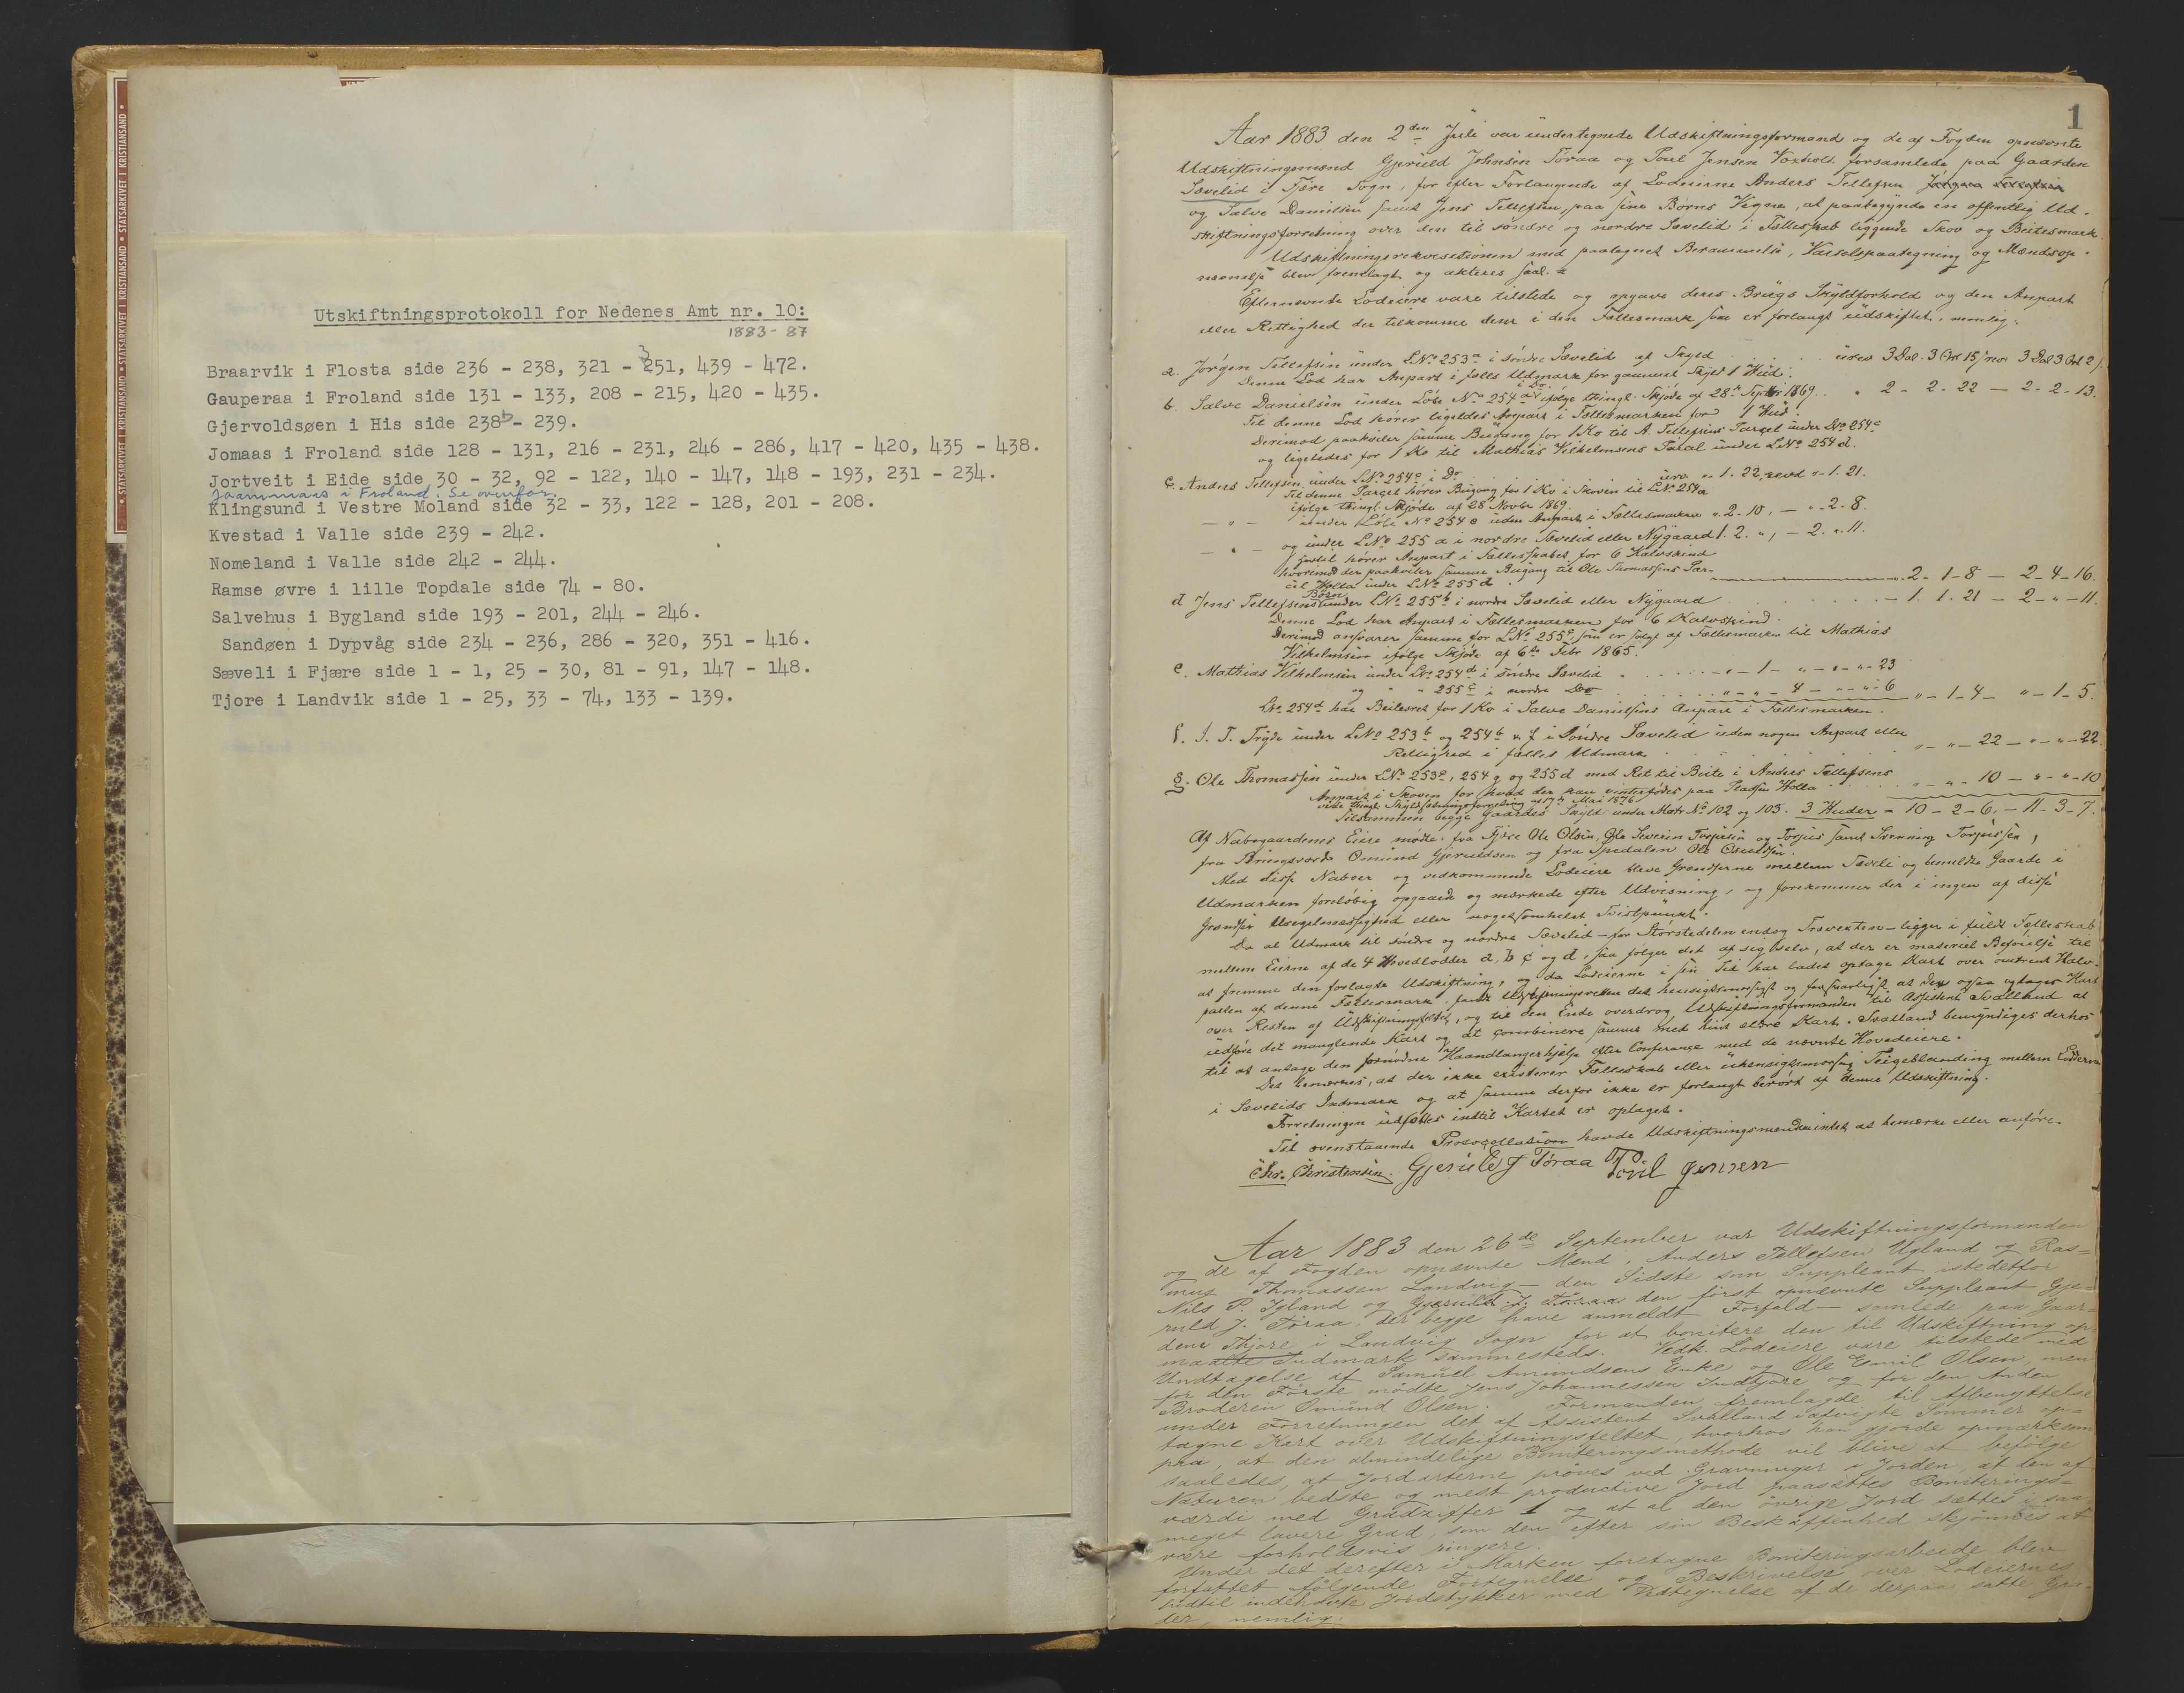 • STATSARKIVET I KRISTIANSAND • STATSARKIVET I KRISTIANSAND • STATSARKIVET I KRISTIANSAND •
Utskiftningsprotokoll for Nedenes Amt nr. 10:
1883-87
Braarvik i Flosta side 236 - 238, 321 - 251, 439 - 472.
3
Gauperaa i Froland side 131 - 133, 208 - 215, 420 - 435.
Gjervoldsøen i His side 238b - 239.
Jomaas i Froland side 128 - 131, 216 - 231, 246 - 286, 417 - 420, 435 - 438.
Jortveit i Eide side 30 - 32, 92 - 122, 140 - 147, 148 - 193, 231 - 234.
Jaammaas i Froland. Se ovenfor.
Klingsund i Vestre Moland side 32 - 33, 122 - 128, 201 - 208.
Kvestad i Valle side 239 - 242.
Nomeland i Valle side 242 - 244.
Ramse øvre i lille Topdale side 74 - 80.
Salvehus i Bygland side 193 - 201, 244 - 246.
Sandøen i Dypvåg side 234 - 236, 286 - 320, 351 - 416.
Sæveli i Fjære side 1 - 1, 25 - 30, 81 - 91, 147 - 148.
Tjore i Landvik side 1 - 25, 33 - 74, 133 - 139.
1
Aar 1883 den 2den Juli var undertegnede Udskiftningsformand og de af Fogden opnævnte
Udskiftningsmænd Gjeruld Johnsen Töraa og Poul Jensen Voxholt forsamlede paa Gaarden
Sævelid i Fjære Sogn, for efter Forlangende af Lodeierne Anders Tellefsen
og Salve Danielsen samt Jens Tellefsen, paa sine Börns Vegne, at paabegynde en offentlig Ud-
skiftningsforretning over den til söndre og nordre Sævelid i Fællesskab liggende Skov og Beitesmark.
Udskiftningsrekvisitionen med paategnet Berammelse, Varselspaategning og Mændsop-
nævnelse blev fremlagt og akteres saal. a
Efternævnte Lodeiere vare tilstede og opgave deres Brugs Skyldforhold og den Anpart
eller Rettighed der tilkomme dem i den Fællesmark som er forlangt udskiftet, nemlig:
a. Jörgen Tellefsen under LNo 253a i söndre Sævelid af Skyld urev. 3 Dal. 3 Ort 15 s, rev. 3 Dal 3 Ort 2 s.
Denne Lod har Anpart i fælles Udmark for gammel Skyld 1 Hud.
b. Salve Danielsen under Löbe No 254a i Do ifölge thingl. Skjöde af 28de Septbr 1869. " 2 - 2 - 22 — 2 - 2 - 13.
Til denne Lod hörer ligeledes Anpart i Fællesmarken for 1 Hud.
Derimod paahviler samme Bugang for 1 Ko til A. Tellefsens Parcel under LNo 254c
og ligeledes for 1 Ko til Mathias Vilhelmsens Parcel under LNo 254d.
c. Anders Tellefsen under LNo 254c i Do urev. " 1. 22, revd " 1. 21.
Til denne Parcel hörer Bugang for 1 Ko i Skoven til LNo 254a
ifölge thingl. Skjöde af 28 Novbr 1869.
— " — under Löbe No 254e uden Anpart i Fællesmarken " 2 - 10, — " - 2 - 8.
— " — og under LNo 255a i nordre Sævelid eller Nygaard 1. 2. ", — 2. " 11.
hvortil hörer Anpart i Fællesskabet for 6 Kalvskind
hvorimod der paahviler samme Bugang til Ole Thomassens Par-
cel Holla under LNo 255d 2 - 1 - 8 — 2 - 4 - 16.
d. Jens Tellefsens Börn under LNo 255b i nordre Sævelid eller Nygaard — 1. 1. 21 — 2 - " - 11.
Denne Lod har Anpart i Fællesmarken for 6 Kalvskind.
Derimod ansvarer samme for LNo 255c, som er solgt af Fællesmarken til Mathias
Vilhelmsen ifölge Skjöde af 6te Febr 1865.
e. Mathias Vilhelmsen under LNo 254d i söndre Sævelid — " - 1 - " - " - " - 23
og " " 255c i nordre Do " - " - 4 - " - " - 6 " - 1 - 4 - " - 1 - 5.
LNo 254d har Beitesret for 1 Ko i Salve Danielsens Anpart i Fællesmarken.
f. J. T. Fryde under LNo 253b og 254b & f i Söndre Sævelid uden nogen Anpart eller
Rettighed i fælles Udmark " - " - 22 — " - " - 22.
g. Ole Thomassen under LNo 253c, 254g og 255d med Ret til Beite i Anders Tellefsens
Anpart i Skoven for hvad der kan vinterfödes paa Pladsen Holla " - " - 10 — " - " - 10
Mai 1876
Tilsammen begge Gaardes Skyld under Matr No 102 og 103. 3 Huder = 10 - 2 - 6. — 11 - 3 - 7.
Af Nabogaardenes Eiere mödte: fra Fjære Ole Olsen, Ole Severin Torjusen og Torjus samt Svenning Torjussen,
fra Omund Gjeruldsen og fra Spedalen Ole
Med disse Naboer og vedkommende Lodeiere bleve Grændserne mellem Sæveli og bemeldte Gaarde i
Udmarken foreløbig opgaaede og mærkede efter Udvisning, og forekommer der i ingen af disse
Grændser Uregelmæssighed eller nogetsomhelst Tvistpunkt.
Da al Udmark til söndre og nordre Sævelid – for Störstedelen endog Trævexten – ligger i fuldt Fællesskab
mellem Eierne af de 4 Hovedlodder a, b c og d, saa fölger det af sig selv, at der er materiel Beföielse til
at fremme den forlangte Udskiftning, og da Lodeierne i sin Tid har ladet optage Kart over omtrent Halv-
parten af denne Fællesmark, fandt Udskiftningsretten det hensigtsmæssigt og forsvarligt at der ogsaa optages Kart
over Resten af Udskiftningsfeltet, og til den Ende overdrog Udskiftningsformanden til Assistent Svalland at
udföre det manglende Kart og at combinere samme med hint ældre Kart. Svalland bemyndiges derhos
til at antage den fornödne Haandlangerhjælp efter Conferance med de nævnte Hovedeiere.
Det bemærkes, at der ikke existerer Fællesskab eller uhensigtsmæssig Teigeblanding mellem Lodderne
i Sævelids Indmark og at samme derfor ikke er forlangt berört af denne Udskiftning.
Forretningen udsattes indtil Kartet er optaget.
Til ovenstaaende Protocollation havde Udskiftningsmændene intet at bemærke eller anföre.
Chr. Christensen. Gjeruld J Töraa Poul Jensen
Aar 1883 den 26de September var Udskiftningsformanden
og de af Fogden opnævnte Mænd, Anders Tellefsen Ugland og Ras-
mus Thomassen Landvig – den Sidste som Suppleant istedetfor
Nils P. Igland og Gjeruld J. Töraa den först opnævnte Suppleant Gje-
ruld J. Töraa, der begge have anmeldt Forfald – samlede paa Gaar-
dene Thjore i Landvig Sogn for at bonitere den til Udskiftning op-
maalte Indmark sammesteds. Vedk. Lodeiere vare tilstede med
Undtagelse af Samuel Amundsens Enke og Ole Emil Olsen, men
for den Förste mödte Jens Johannessen Indtjore og for den Anden
Broderen Omund Olsen. Formanden fremlagde til Afbenyttelse
under Forretningen det af Assistent Svalland i afvigte Sommer op-
tagne Kart over Udskiftningsfeltet, hvorhos han gjorde opmærksom
paa, at den almindelige Boniteringsmethode vil blive at befölge
saaledes, at Jordarterne pröves ved Gravninger i Jorden, at den af
Naturen bedste og mest productive Jord paasættes Boniterings-
værdi med Gradziffer 1 og at al den övrige Jord sættes i saa
meget lavere Grad, som den efter sin Beskaffenhed skjönnes at
være forholdsvis ringere.
Under det derefter i Marken foretagne Boniteringsarbeide blev
forfattet fölgende Fortegnelse og Beskrivelse over Lodeiernes
hidtil indehavte Jordstykker med Vedtegnelse af de derpaa satte Gra-
der, nemlig: